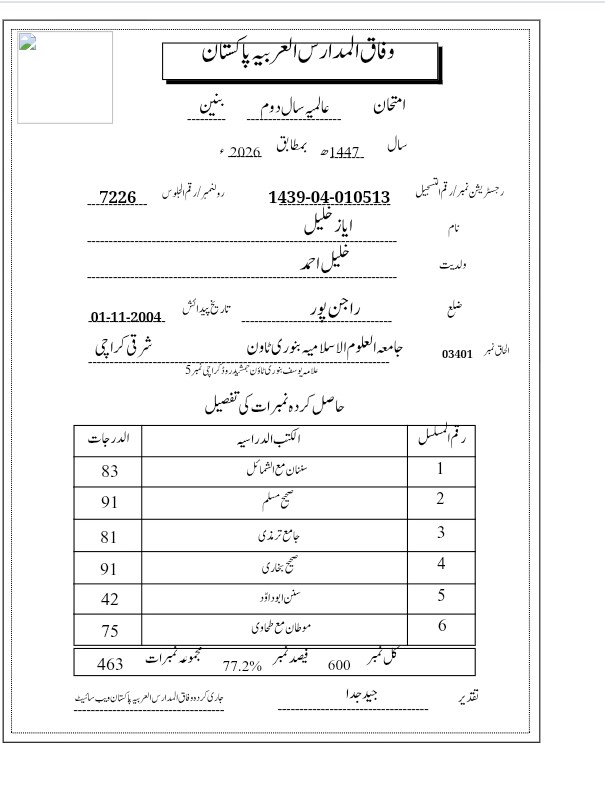 وفاق المدارس العربیہ پاکستان
امتحان عالمیہ سال دوم بنین
سال 1447ھ بمطابق 2026ء
رجسٹریشن نمبر/رقم التسجیل 1439-04-010513 رولنمبر/رقم الجلوس 7226
نام ایاز خلیل
ولدیت خلیل احمد
ضلع راجن پور تاریخ پیدائش 01-11-2004
الحاق نمبر 03401 جامعہ العلوم الاسلامیہ بنوری ٹاون شرقی کراچی
علامہ یوسف بنوری ٹاؤن جمشید روڈ کراچی نمبر 5
حاصل کردہ نمبرات کی تفصیل
رقم المسلسل الکتب الدراسیہ الدرجات
1 سننان مع الشمائل 83
2 صحیح مسلم 91
3 جامع ترمذی 81
4 صحیح بخاری 91
5 سنن ابوداؤد 42
6 موطان مع طحاوی 75
کل نمبر 600 فیصد نمبر 77.2% مجموعہ نمبرات 463
تقدیر جید جدا جاری کردہ وفاق المدارس العربیہ پاکستان ویب سائیٹ